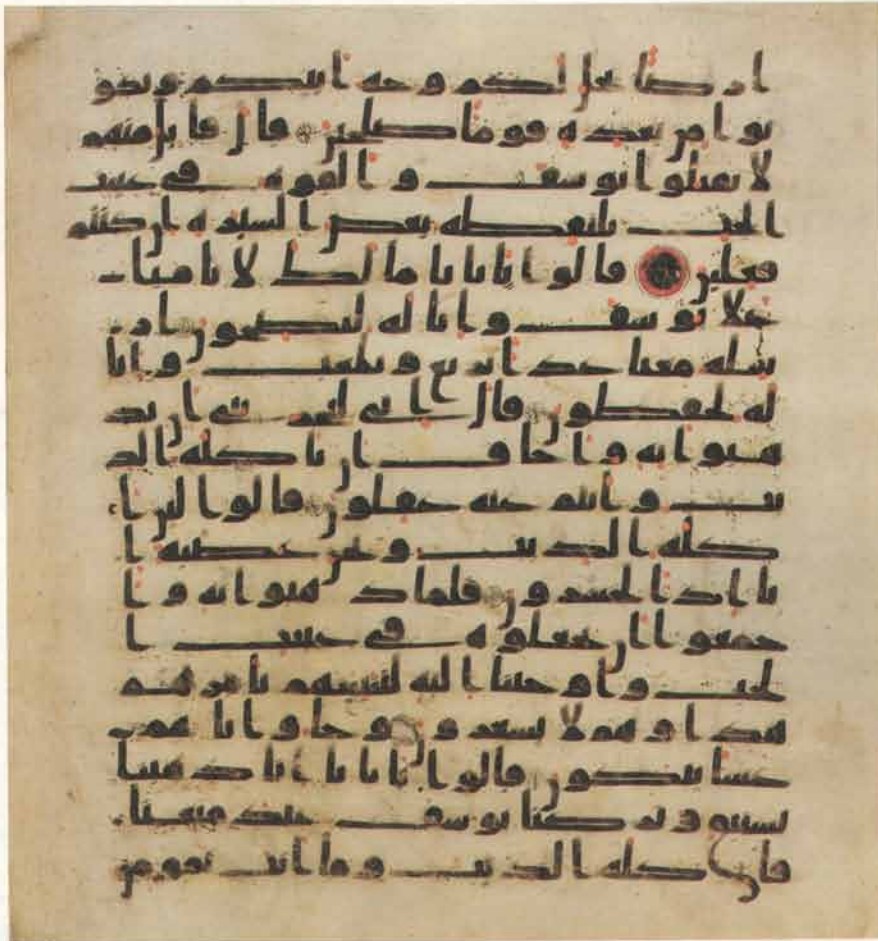 ارضا يخل لكم وجه ابيكم وتكو
نوا من بعده قوما صلحين قال قايل منهم
لا تقتلوا يوسف والقوه في غيبت
الجب يلتقطه بعض السياره ان كنتم
فعلين قالوا يابانا ما لك لا تامنا
على يوسف وانا له لنصحون ار
سله معنا غدا يرتع ويلعب وانا
له لحفظون قال اني ليحزنني ان تذ
هبوا به واخاف ان ياكله الذ
يب وانتم عنه غفلون قالوا لين ا
كله الذيب ونحن عصبه ا
نا اذا لخسرون فلما ذهبوا به وا
جمعوا ان يجعلوه في غيبت ا
لجب واوحينا اليه لتنبينهم بامرهم
هذا وهم لا يشعرون وجاو اباهم
عشا يبكون قالوا يابانا انا ذهبنا
نستبق وتركنا يوسف عند متعنا
فاكله الذيب وما انت بمومن